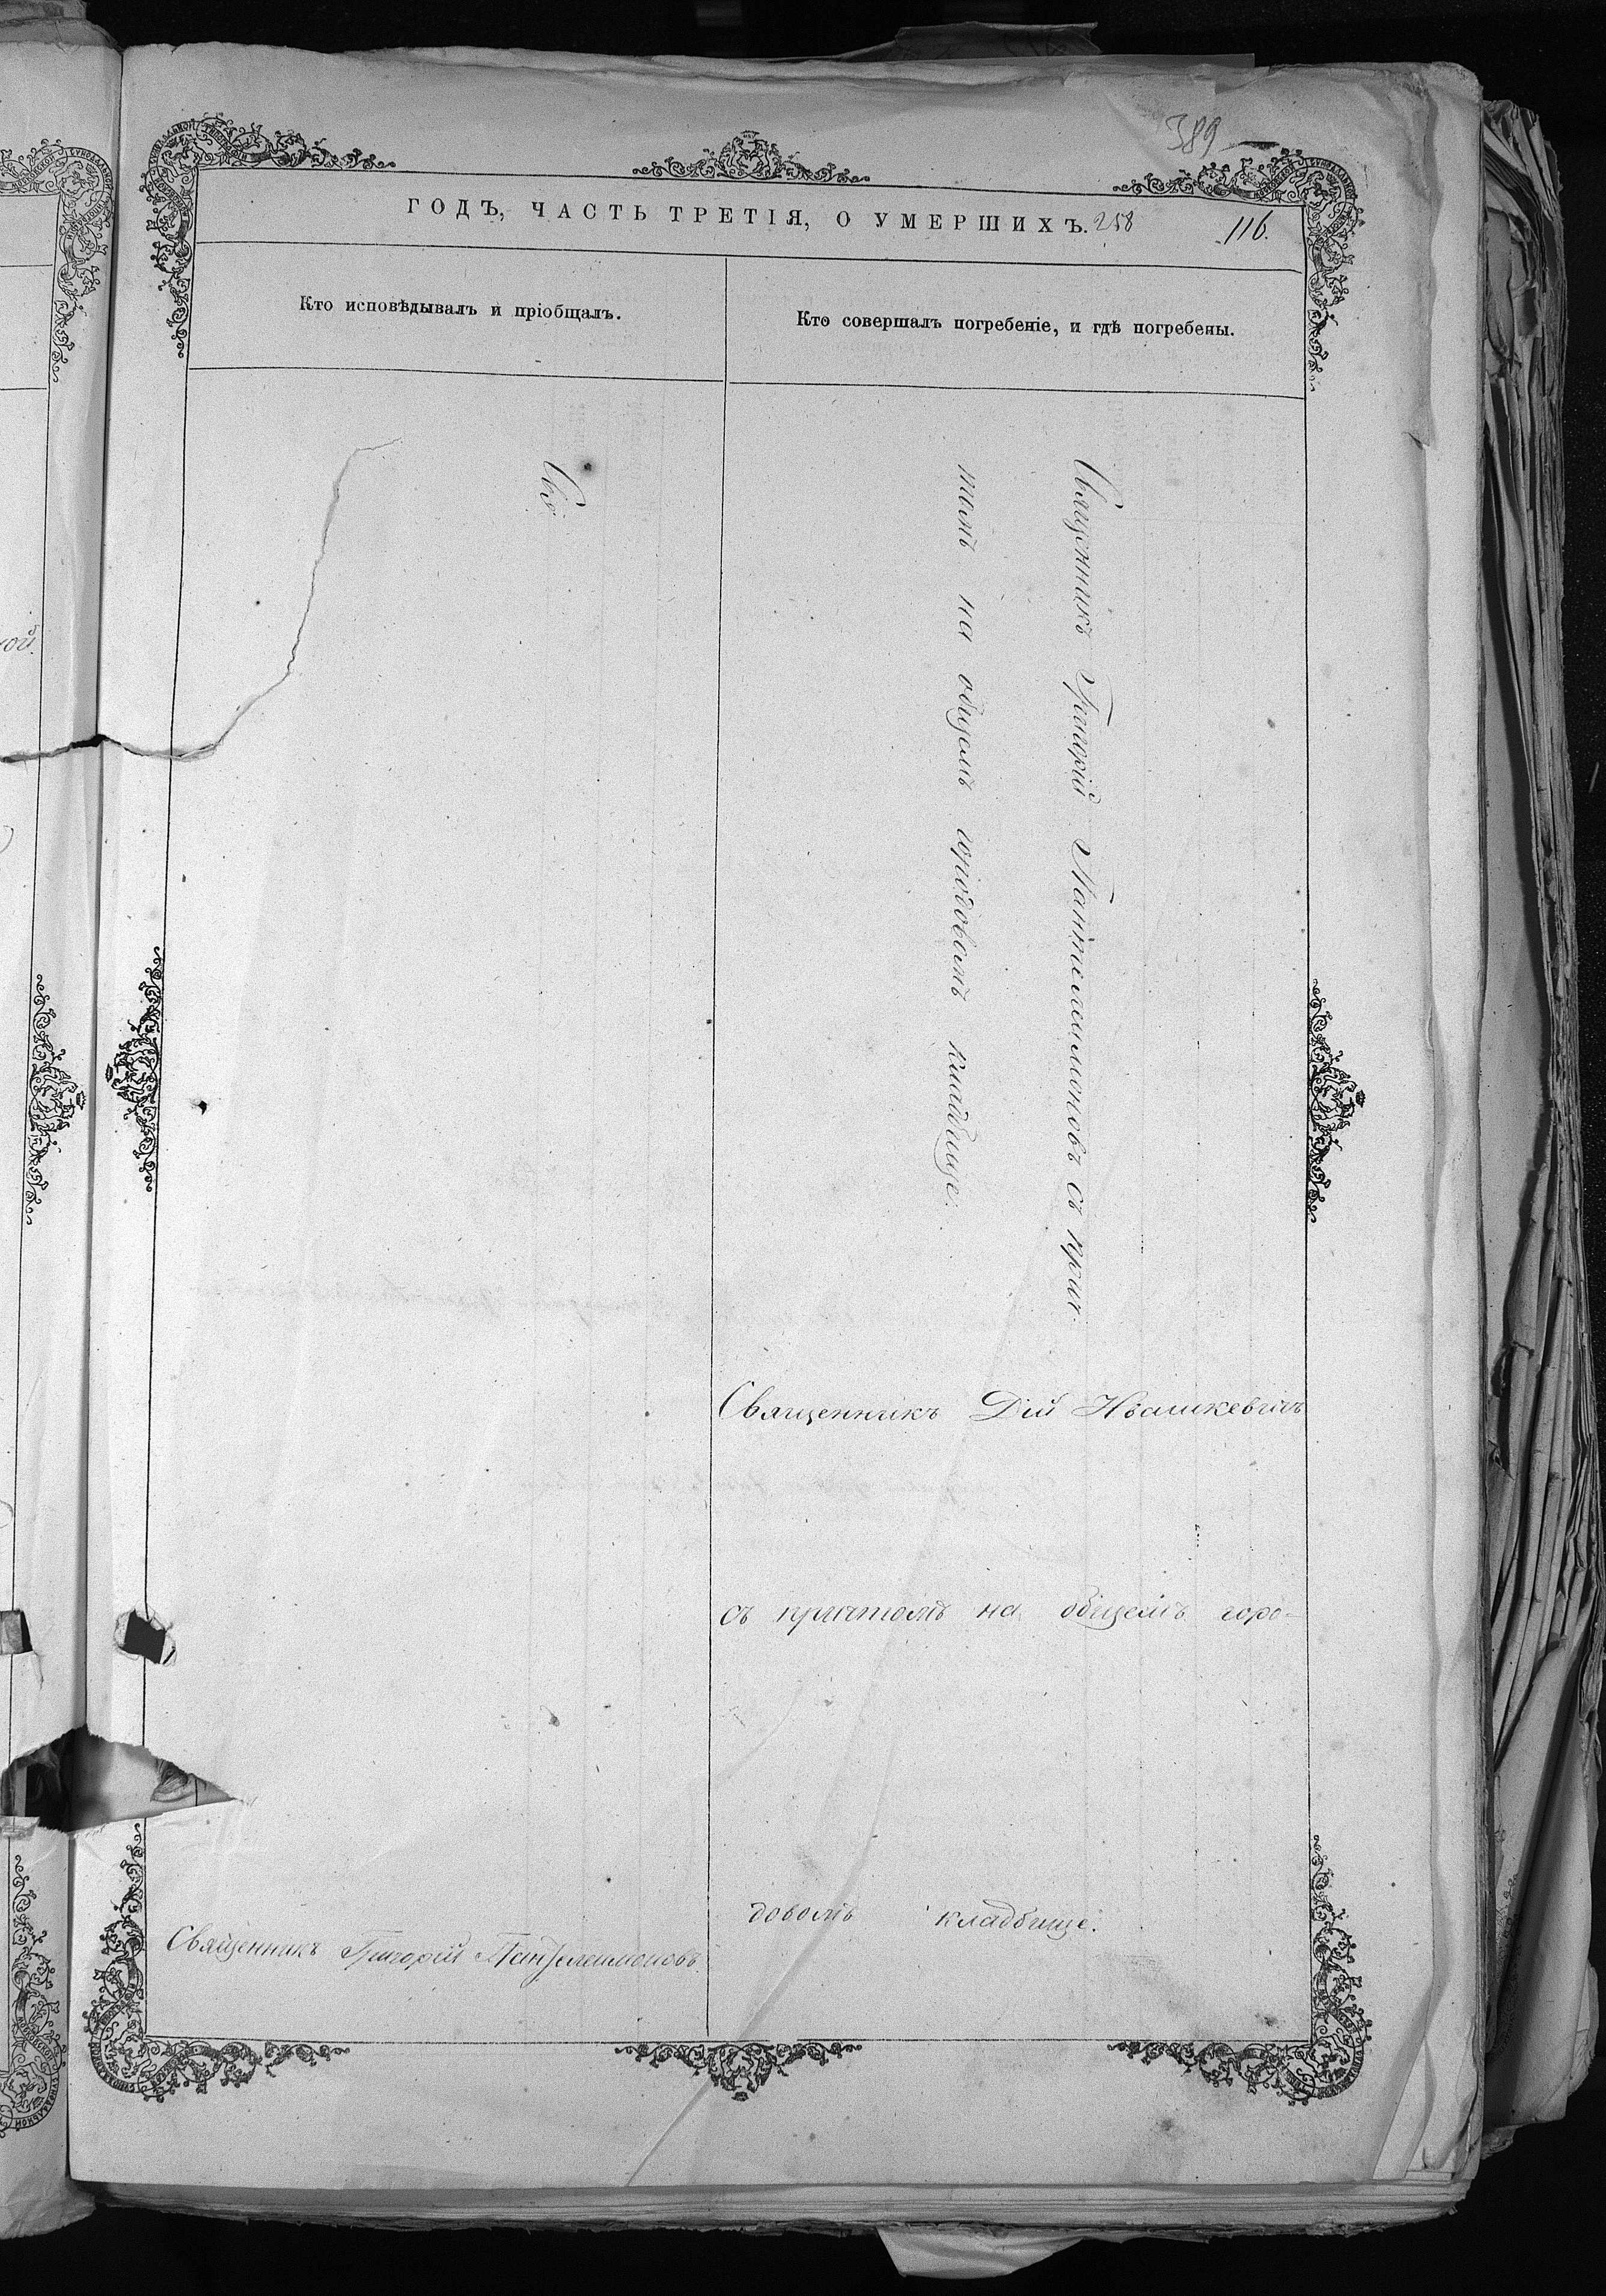 389
ГОДЪ, ЧАСТЬ ТРЕТІЯ, О УМЕРШИХЪ. 258 116.
Кто исповѣдывалъ и пріобщалъ.
Кто совершалъ погребеніе, и гдѣ погребены.
Священникъ Григорій Пантелеимоновъ съ прич-
томъ на общемъ городовомъ кладбище.
Священникъ Дій Ивашкевичъ
съ причтомъ на общемъ горо-
довомъ кладбище.
Священникъ Григорій Пантелеимоновъ.